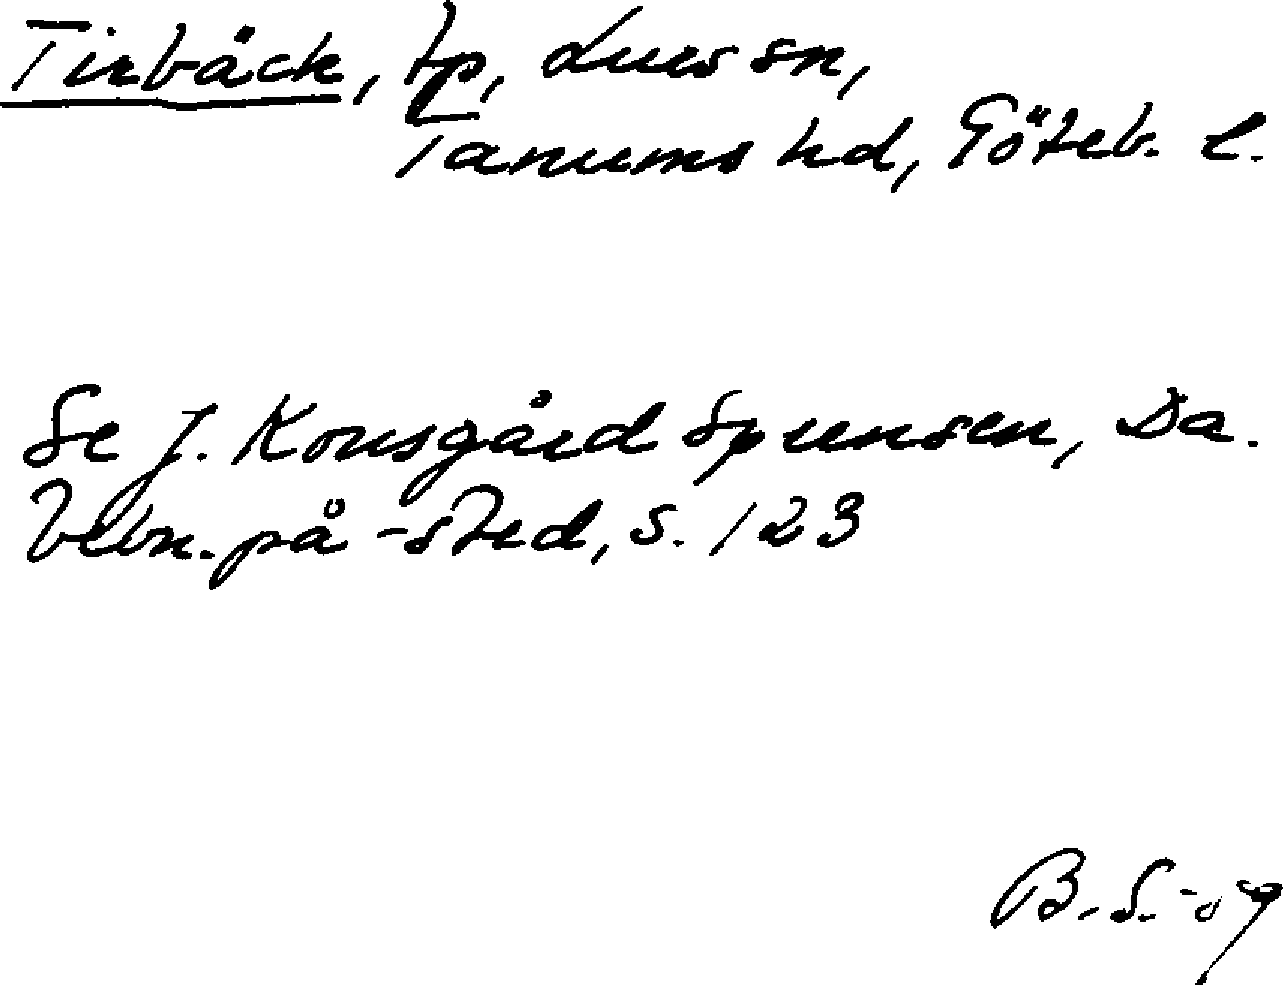 Tirbäck, tp, Lurs sn,
Tanums hd, Göteb. l.
Se J. Kousgård Sørensen, Da.
bebn. på -sted, s. 123
B.S.-